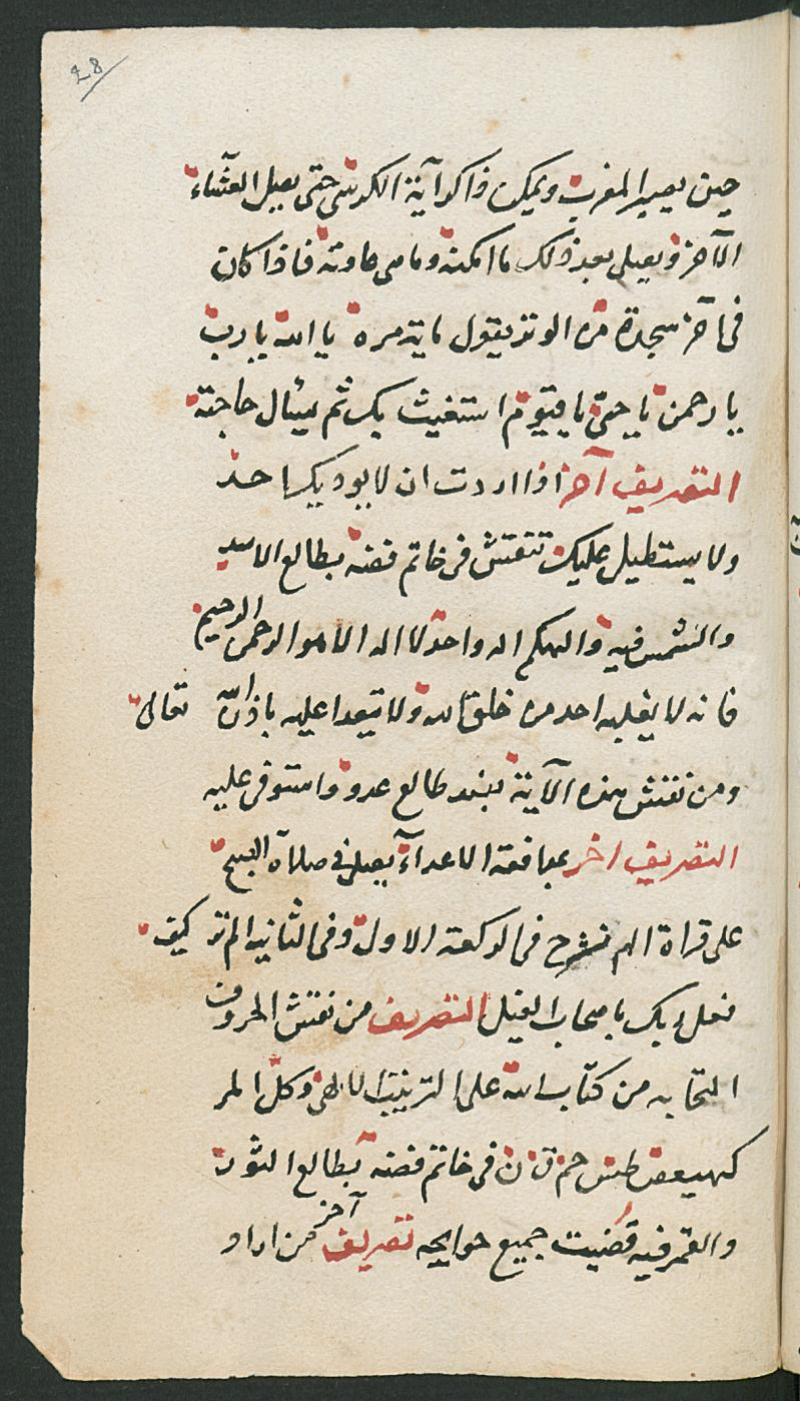 28
حين يصير المغرب ويمكن ذاكرا آية الكرسى حتى يصل العشاء
الآخر ويصلى بعد ذلك ما امكنه وما من عادته فاذا كان
فى آخر سجدة من الوتر يقول ماية مره يا الله يا رب
يا رحمن يا حىّ يا قيّوم استغيث بك ثم يسال حاجته
التصريف آخر اذا اردت ان لا يوديك احد
ولا يستطيل عليك تنقش فى خاتم فضه بطالع الاسد
والشمس فيه والهكم اله واحد لا اله الا هو الرحمن الرحيم
فانه لا يغلبه احد من خلق الله ولا يتعدا عليه باذن الله تعالى
ومن نقش هذه الآية بطالع عدو واستوفى عليه
التصريف اخر لاعداء يصلى فى صلاة الصبح
على قراة الم نشرح فى الركعة الاول وفى الثانيه الم تر كيف
فعل ربك باصحاب الفيل التصريف من نقش الحروف
من كتاب الله على الترتيب وكل المر
كهيعص طس حم ق ن فى خاتم فضه بطالع الثور
والقمر فيه قضيت جميع حوايجه تصريف آخر من اراد